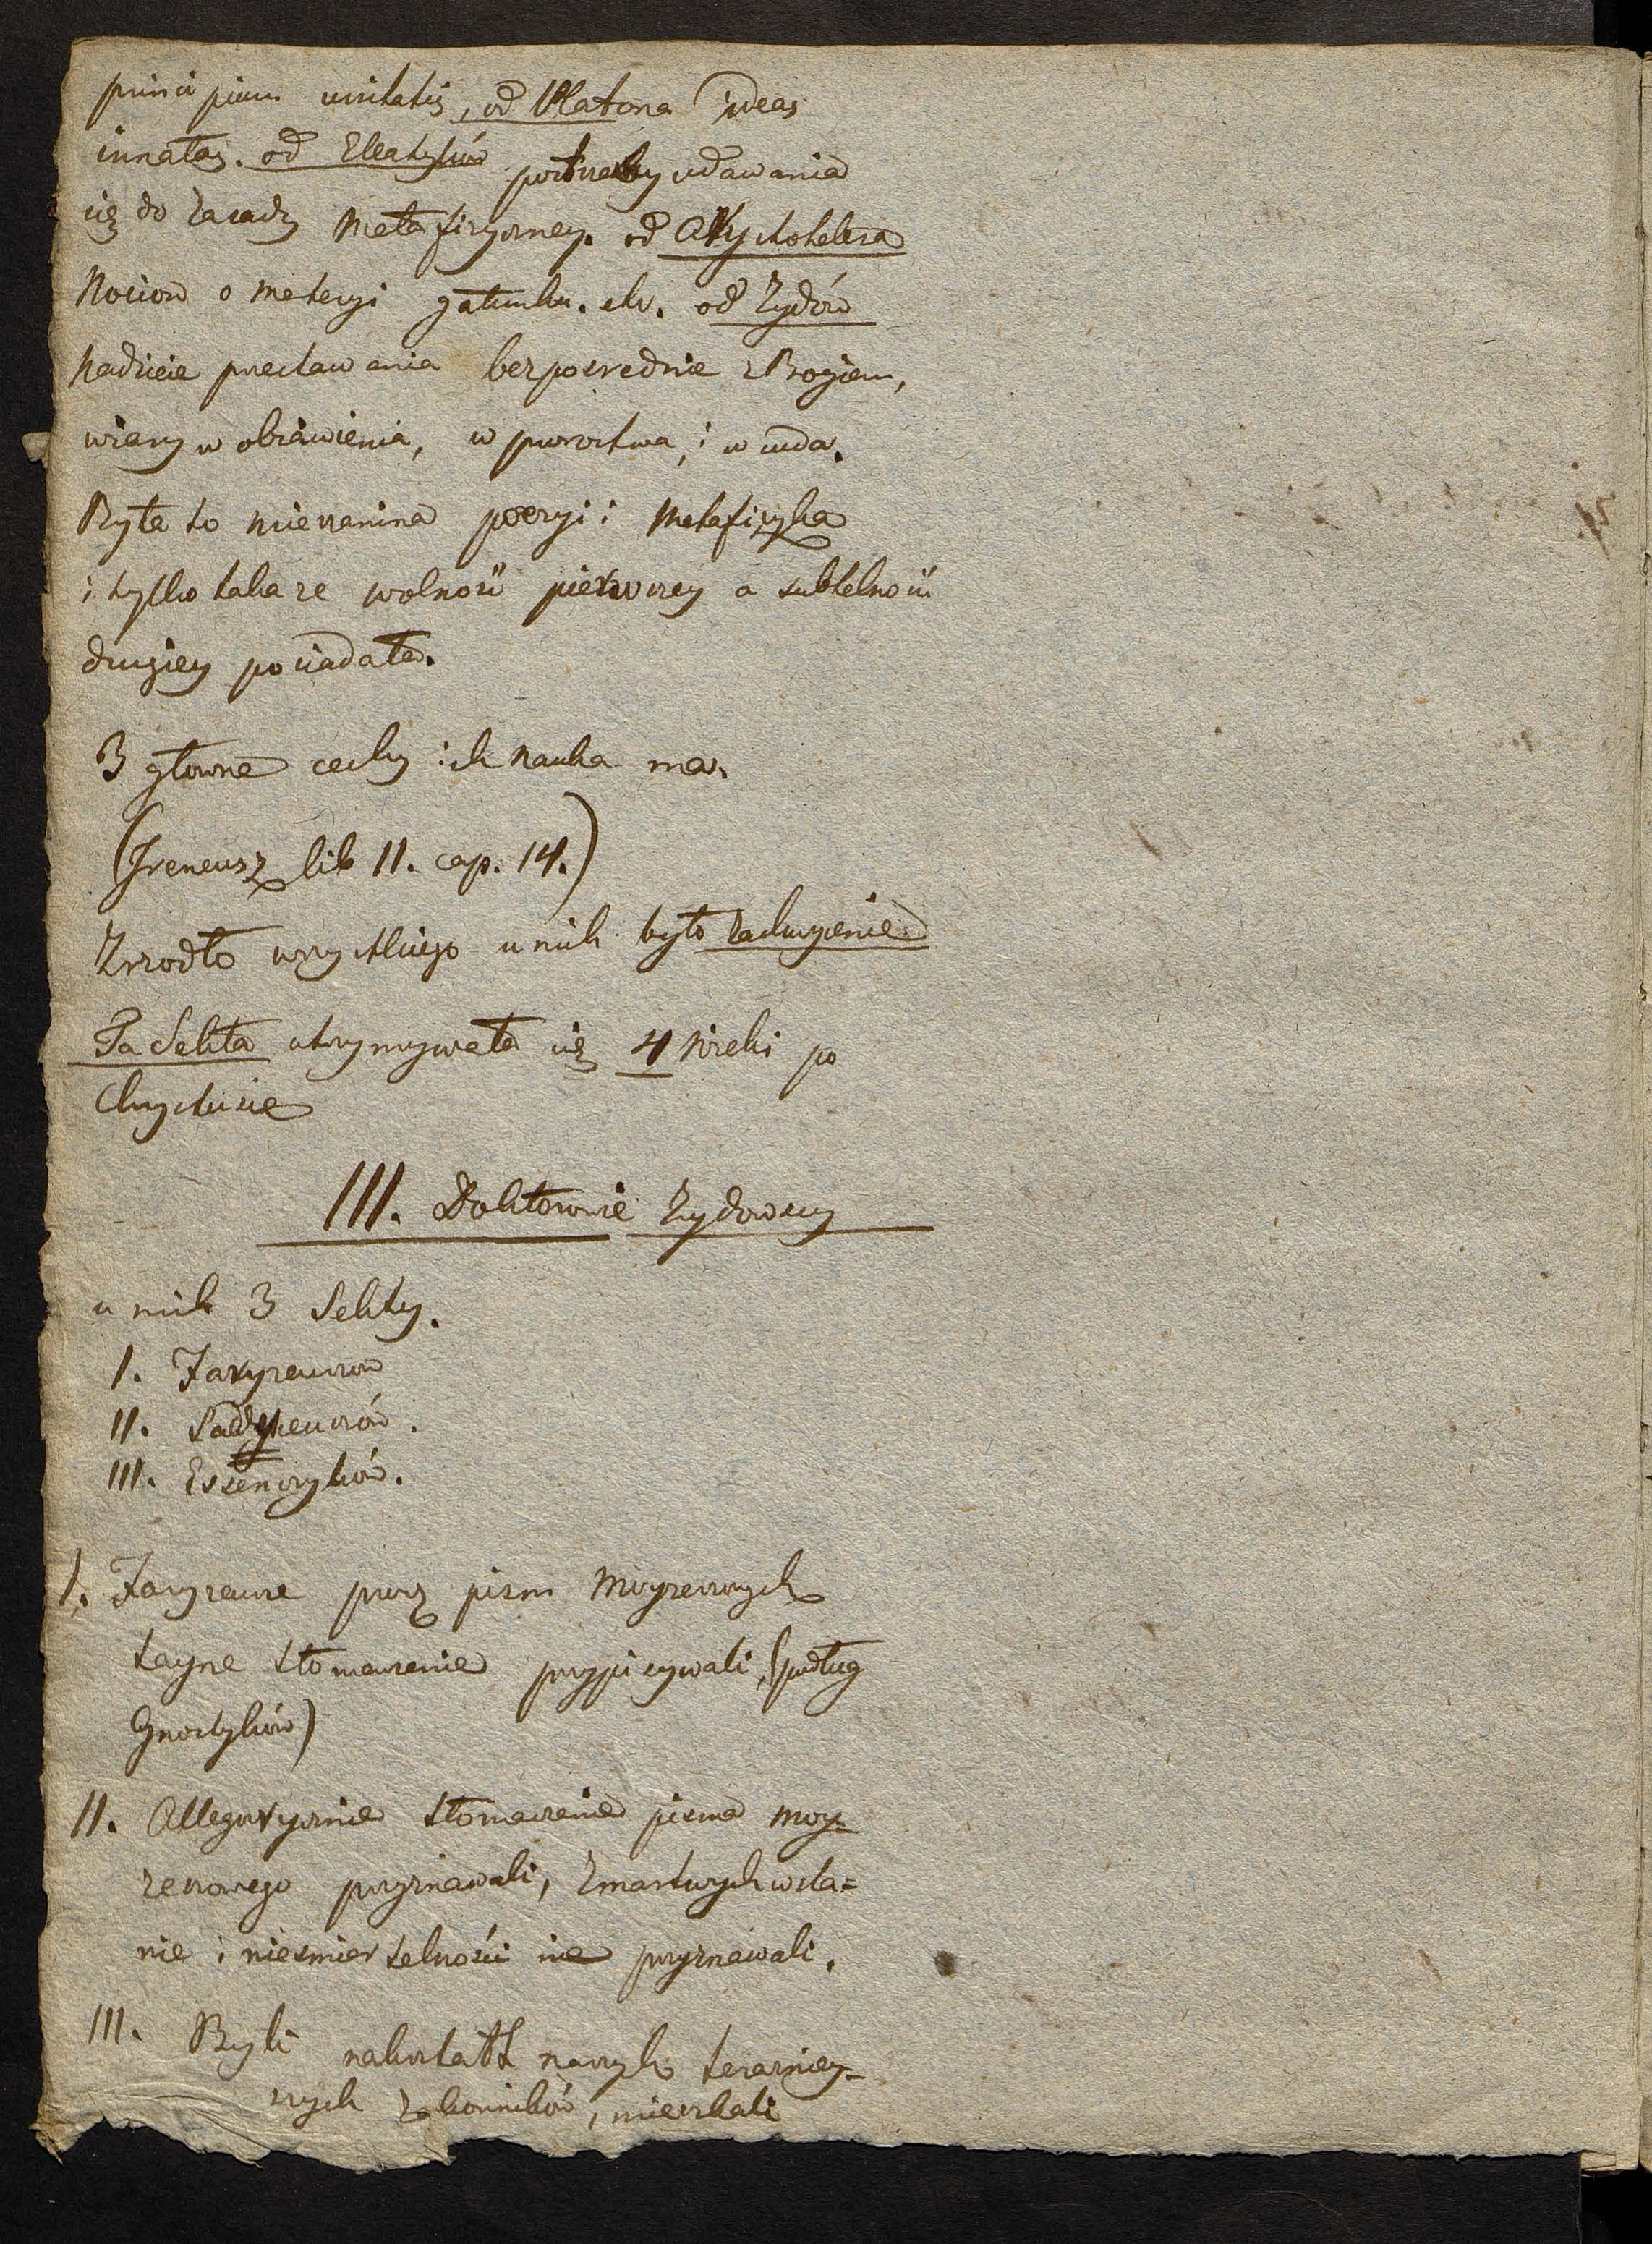 principium unitatis, od Platona ideas
innatas. od Eleatyków potrzeby udawania
się do zasady metafizyczney. od Arystotelesa
Nocion o Materyi gatunku. etc. od Żydów
Nadzieie przestawania bezposrednie z Bogiem,
wiary w obiawienia, w proroctwa, i w cuda.
Była to mieszanina poezyi i metafizyka
i tylko taka ze wolność pierwszey a subtelność
drugiey posiadała.
3 głowne cechy ich Nauka ma.
(Ireneusz lib 11. cap. 14.)
Zrzodło wszystkiego u nich było zachwycenie
Ta Sekta utrzymywała się 4 wieki po
Chrystusie
III. Doktorowie Żydowscy
u nich 3 Sekty.
I. Faryzeuszow
II. Sadyceuszów.
III. Essenczyków.
I. Faryzeusze przez pism Moyzeszowych
tayne tłomaczenie przypisywali, (podług
Gnostyków)
II. Allegorycznie tłomaczenie pisma Moy=
zeszowego przyznawali, zmartwychwsta=
nie i niesmiertelności nie przyznawali.
III. Byli nakształt naszych terazniey=
szych zakonników, mieszkali